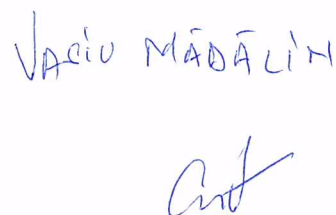 VASIU MĂDĂLIN